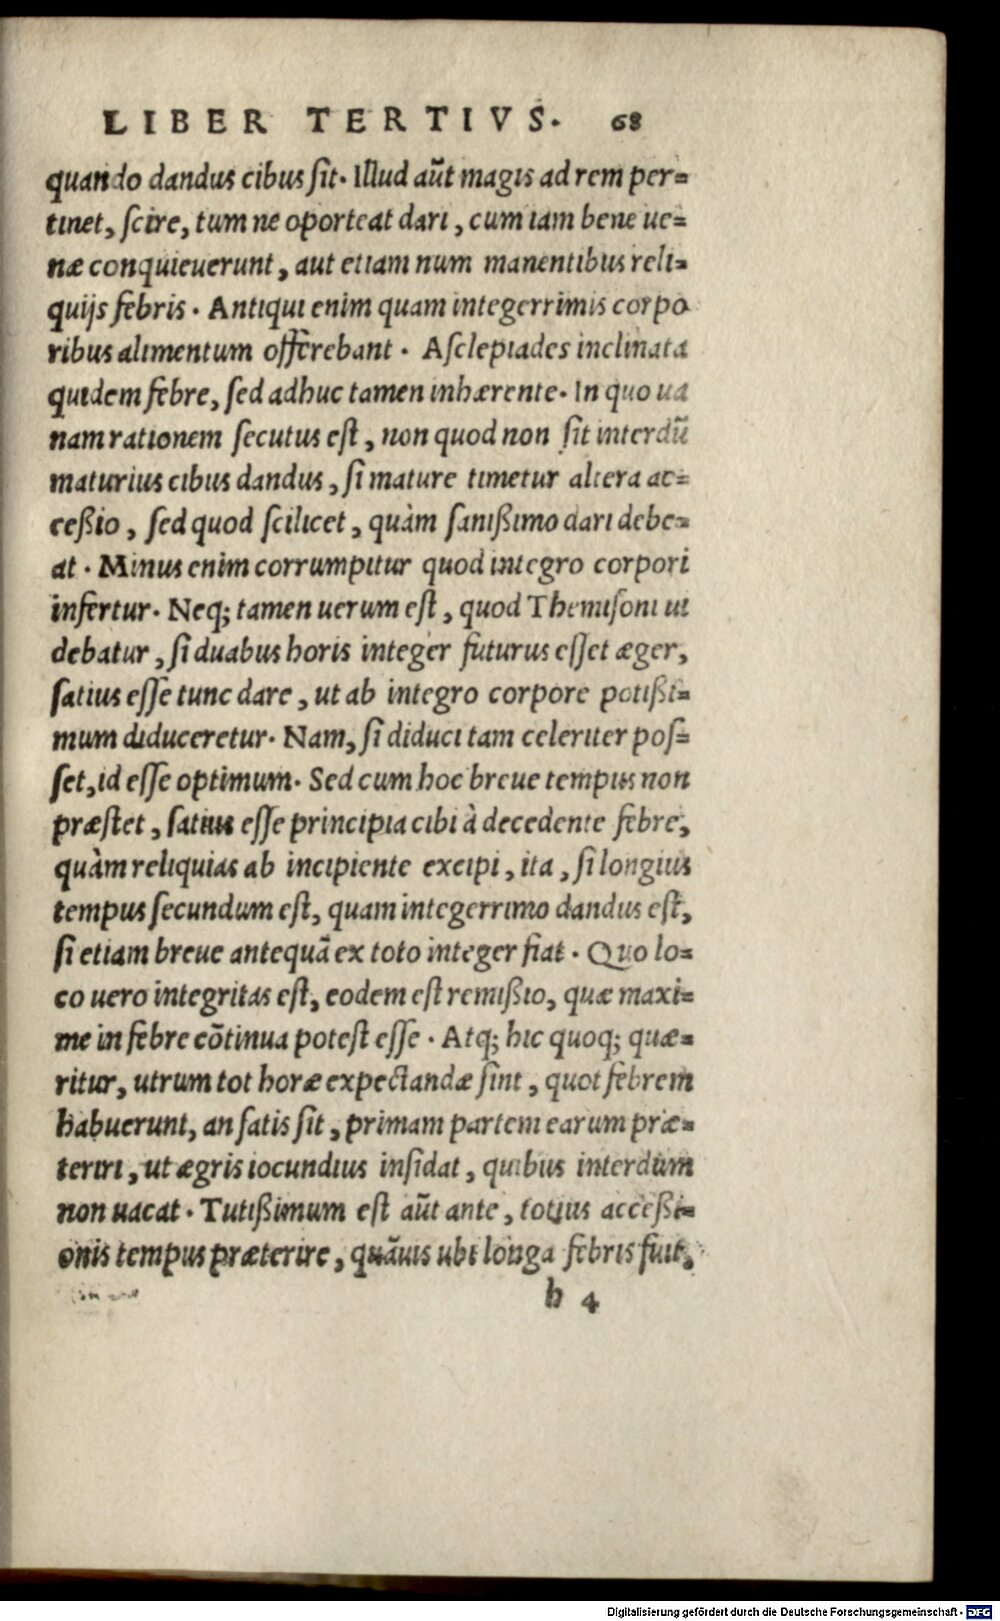 LIBER TERTIVS. 68
quando dandus cibus ſit. Illud aūt magis ad rem per=
tinet, ſcire, tum ne oporteat dari, cum iam bene ue=
næ conquieuerunt, aut etiam num manentibus reli=
quijs febris. Antiqui enim quam integerrimis corpo
ribus alimentum offerebant. Aſclepiades inclinata
quidem febre, ſed adhuc tamen inhærente. In quo ua
nam rationem ſecutus eſt, non quod non ſit interdū
maturius cibus dandus, ſi mature timetur altera ac=
ceßio, ſed quod ſcilicet, quàm ſanißimo dari debe=
at. Minus enim corrumpitur quod integro corpori
infertur. Neq; tamen uerum eſt, quod Themiſoni ui
debatur, ſi duabus horis integer futurus eſſet æger,
ſatius eſſe tunc dare, ut ab integro corpore potißi=
mum diduceretur. Nam, ſi diduci tam celeriter poſ=
ſet, id eſſe optimum. Sed cum hoc breue tempus non
præſtet, ſatius eſſe principia cibi à decedente febre,
quàm reliquias ab incipiente excipi, ita, ſi longius
tempus ſecundum eſt, quam integerrimo dandus eſt,
ſi etiam breue antequā ex toto integer fiat. Quo lo=
co uero integritas eſt, eodem eſt remißio, quæ maxi=
me in febre cōtinua poteſt eſſe. Atq; hic quoq; quæ=
ritur, utrum tot horæ expectandæ ſint, quot febrem
habuerunt, an ſatis ſit, primam partem earum præ=
teriri, ut ægris iocundius inſidat, quibus interdum
non uacat. Tutißimum eſt aūt ante, totius acceßi=
onis tempus præterire, quāuis ubi longa febris fuit,
h 4
Digitalisierung gefördert durch die Deutsche Forschungsgemeinschaft - DFG